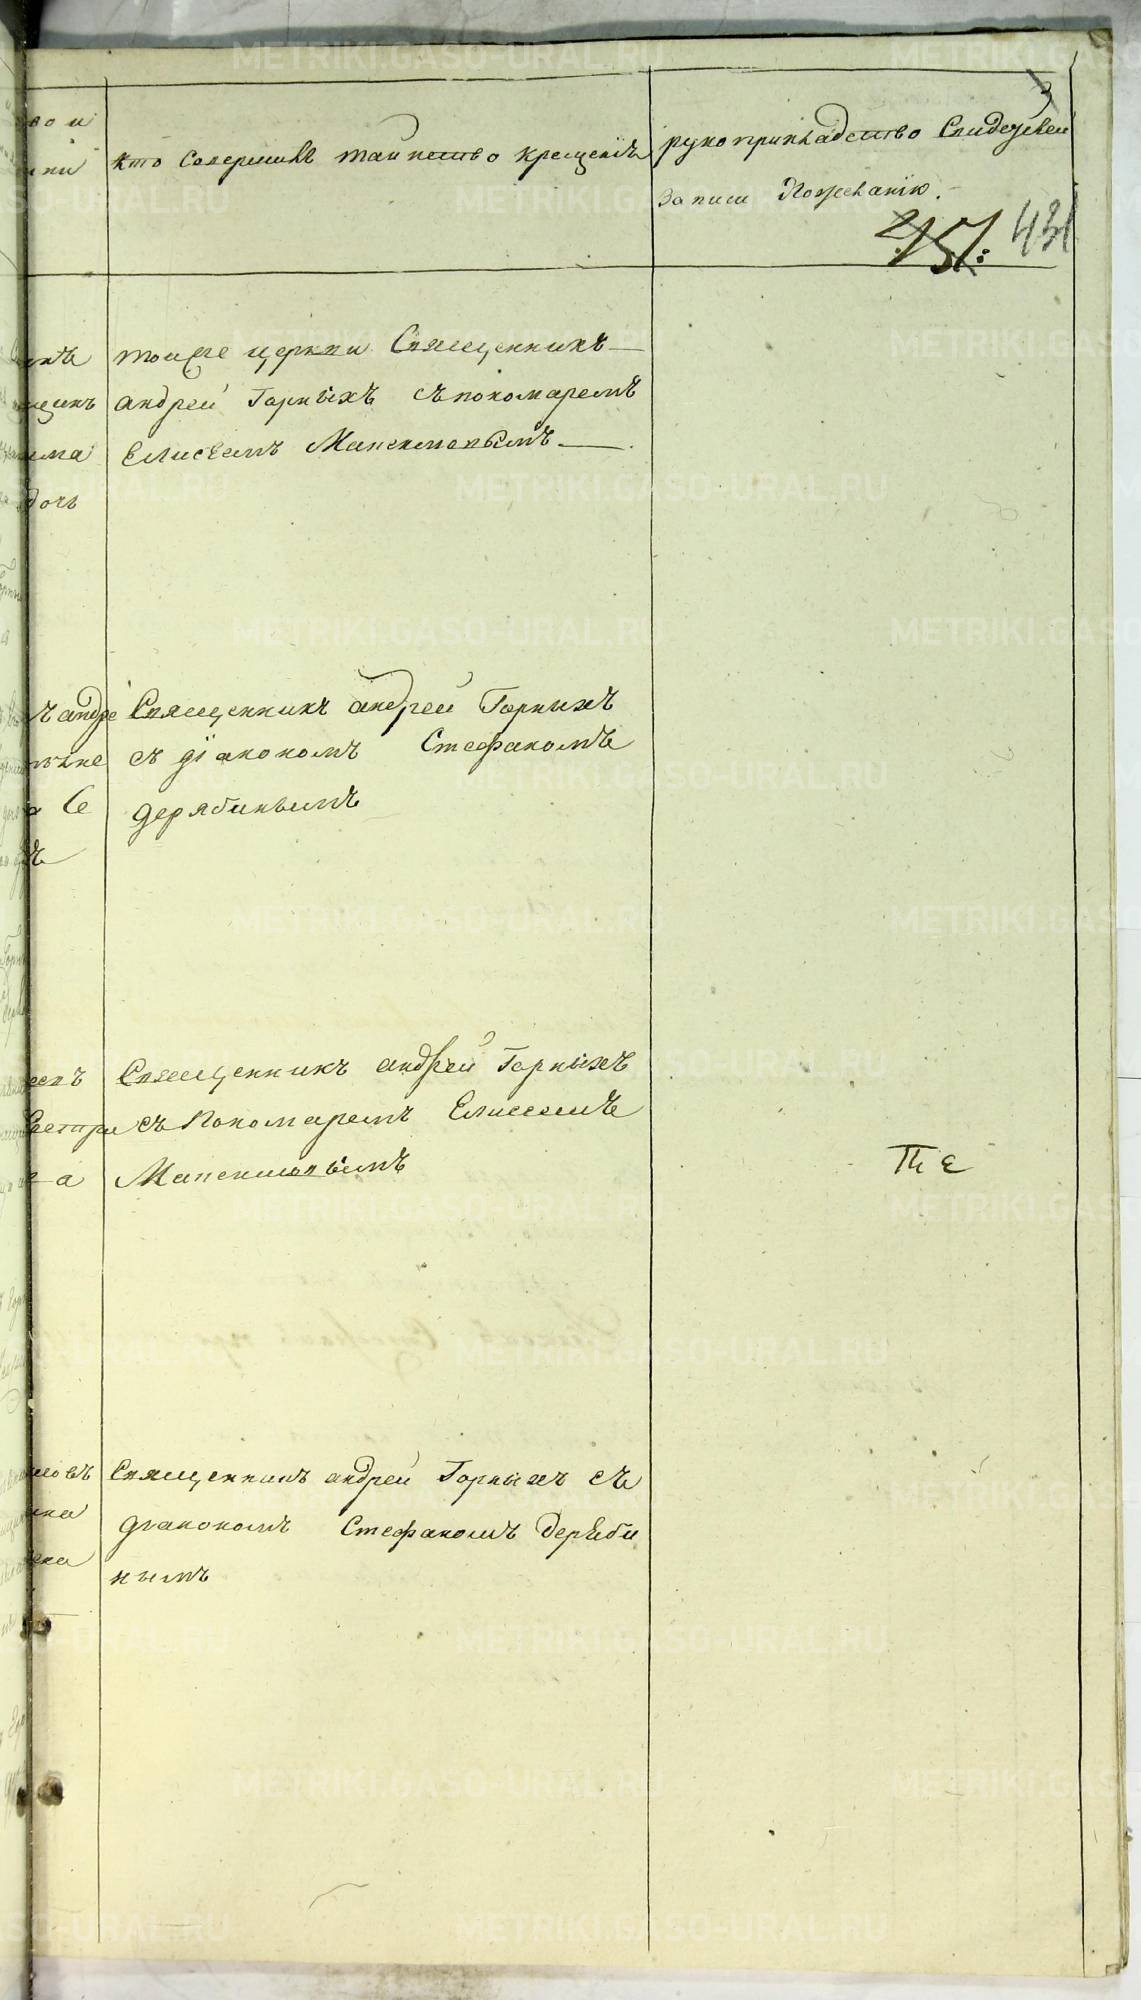 кто Совершилъ таинство крещенія
рукоприкладство Свидетелей
записи По желанію.
431
257:
тоиже церкви Священникъ
андрей Горныхъ съ пономаремъ
Елисеемъ Максимовымъ
дочь
Священникъ андрей Горныхъ
съ діакономъ Стефаномъ
дерябинымъ
Священникъ андрей Горныхъ
съ Пономаремъ Елисеемъ
Максимовымъ
Священникъ андрей Горныхъ съ
діакономъ Стефаномъ Деряби
нымъ
METRIKI.GASO-URAL.RU